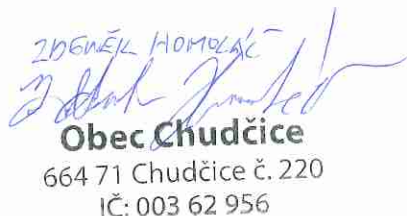 ZDENĚK HOMOLÁČ
Obec Chudčice
664 71 Chudčice č. 220
IČ: 003 62 956